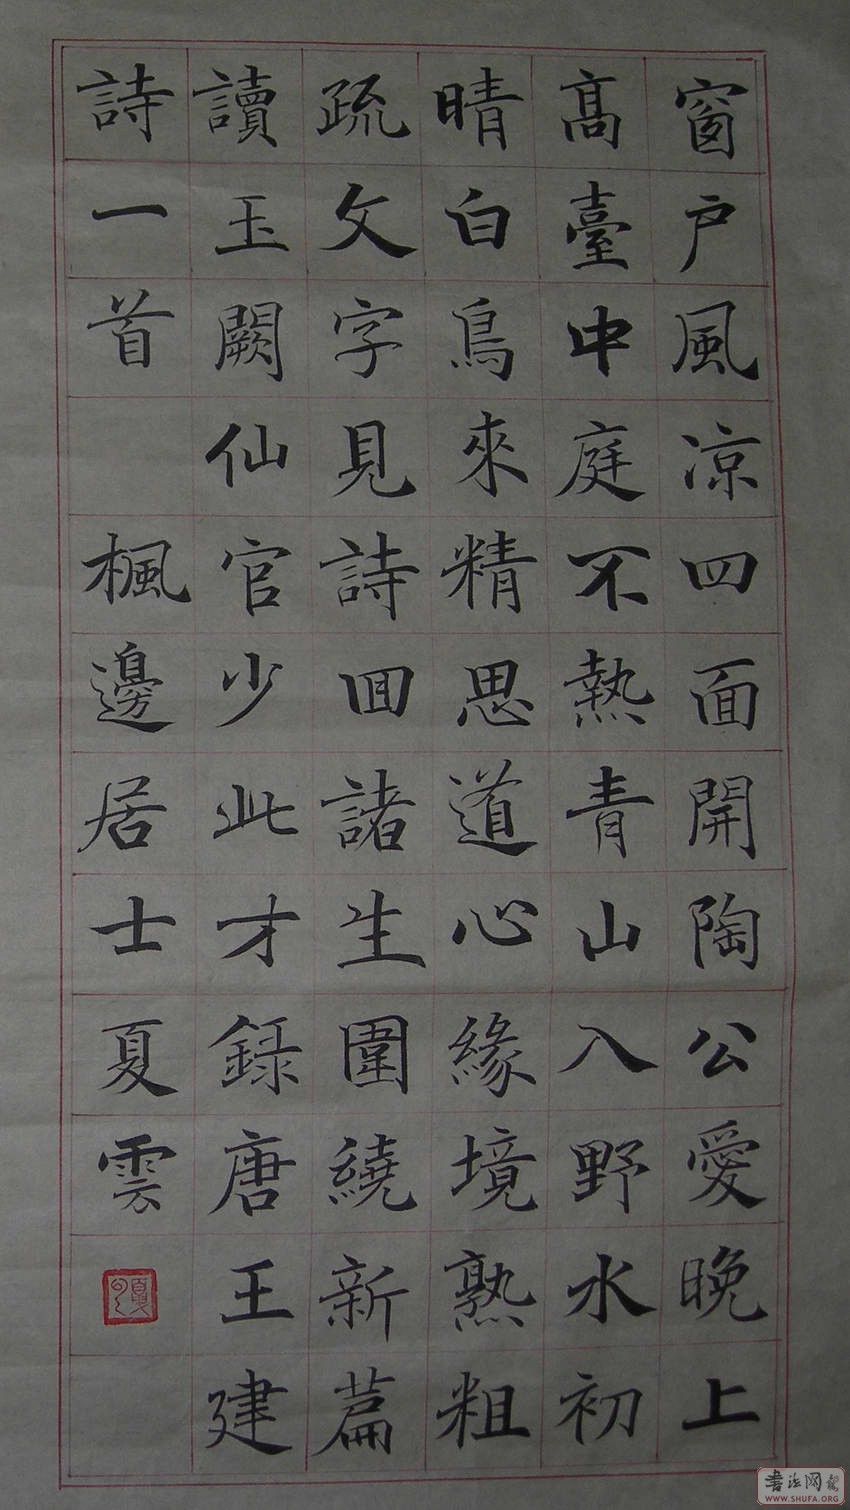 窗戶風凉四面開陶公愛晚上
高臺中庭不熱青山入野水初
晴白鳥來精思道心緣境熟粗
疏文字見詩回諸生圍繞新篇
讀玉闕仙官少此才録唐王建
詩一首 楓邊居士夏雲
書法网
WWW.SHUFA.ORG